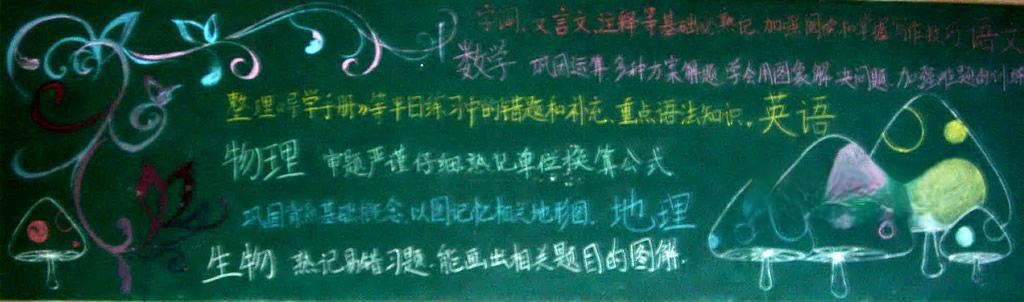 字词、文言文、注释等基础必熟记,加强阅读和掌握写作技巧 语文
数学 巩固运算多种方案解题,学会用图象解决问题,加强难题的训练
整理《导学手册》等平日练习中的错题和补充,重点语法知识。英语
物理 审题严谨仔细熟记单位换算公式
巩固基础概念,以图记忆相关地形图. 地理
生物 熟记易错习题.能画出相关题目的图解.